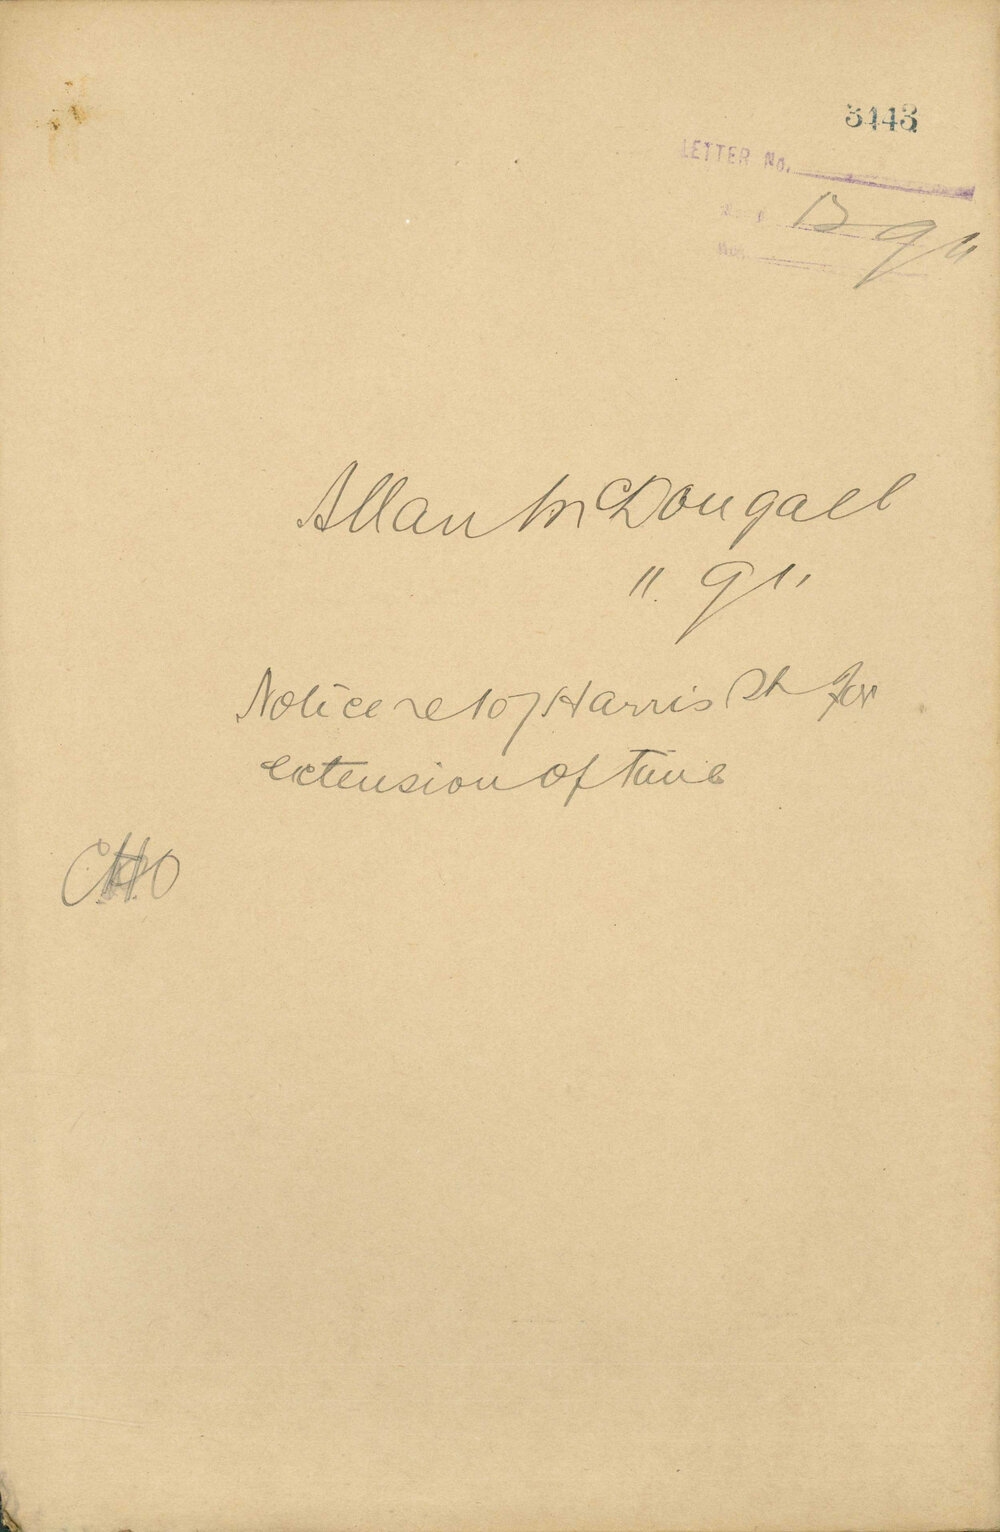 5443
LETTER No.
B 9"
Allan McDougall
" 9 1"
Notice re 107 Harris St for
extension of time
CHO